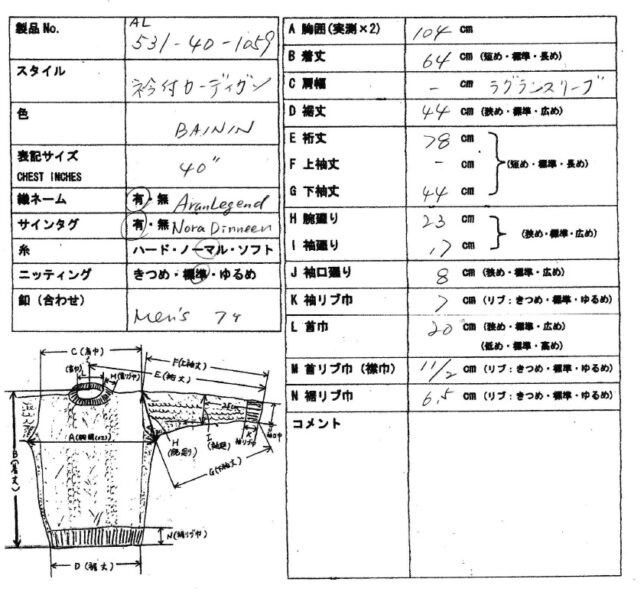 製品No.
AL
531-40-1059
スタイル
衿付カーディガン
色
BAININ
表記サイズ
CHEST INCHES
40"
織ネーム
有・無 AranLegend
サインタグ
有・無 Nora Dinneen
糸
ハード・ノーマル・ソフト
ニッティング
きつめ・標準・ゆるめ
釦（合わせ）
Men's 7ヶ
A 胸囲(実測×2) 104 cm
B 着丈 64 cm (短め・標準・長め)
C 肩幅 - cm ラグランスリーブ
D 裾丈 44 cm (狭め・標準・広め)
E 裄丈 78 cm
F 上袖丈 - cm (短め・標準・長め)
G 下袖丈 44 cm
H 腕廻り 23 cm
(狭め・標準・広め)
I 袖廻り 17 cm
J 袖口廻り 8 cm (狭め・標準・広め)
K 袖リブ巾 7 cm (リブ：きつめ・標準・ゆるめ)
L 首巾 20 cm (狭め・標準・広め)
(低め・標準・高め)
M 首リブ巾（襟巾） 11/2 cm (リブ：きつめ・標準・ゆるめ)
N 裾リブ巾 6.5 cm (リブ：きつめ・標準・ゆるめ)
コメント
C(肩巾)
F(上袖丈)
E(裄丈)
L
(首巾)
M(首リブ巾)
A(胸囲(×2))
B(着丈)
H
(腕廻り)
I
(袖廻)
K
袖リブ巾
G(下袖丈)
N(裾リブ巾)
D(裾丈)